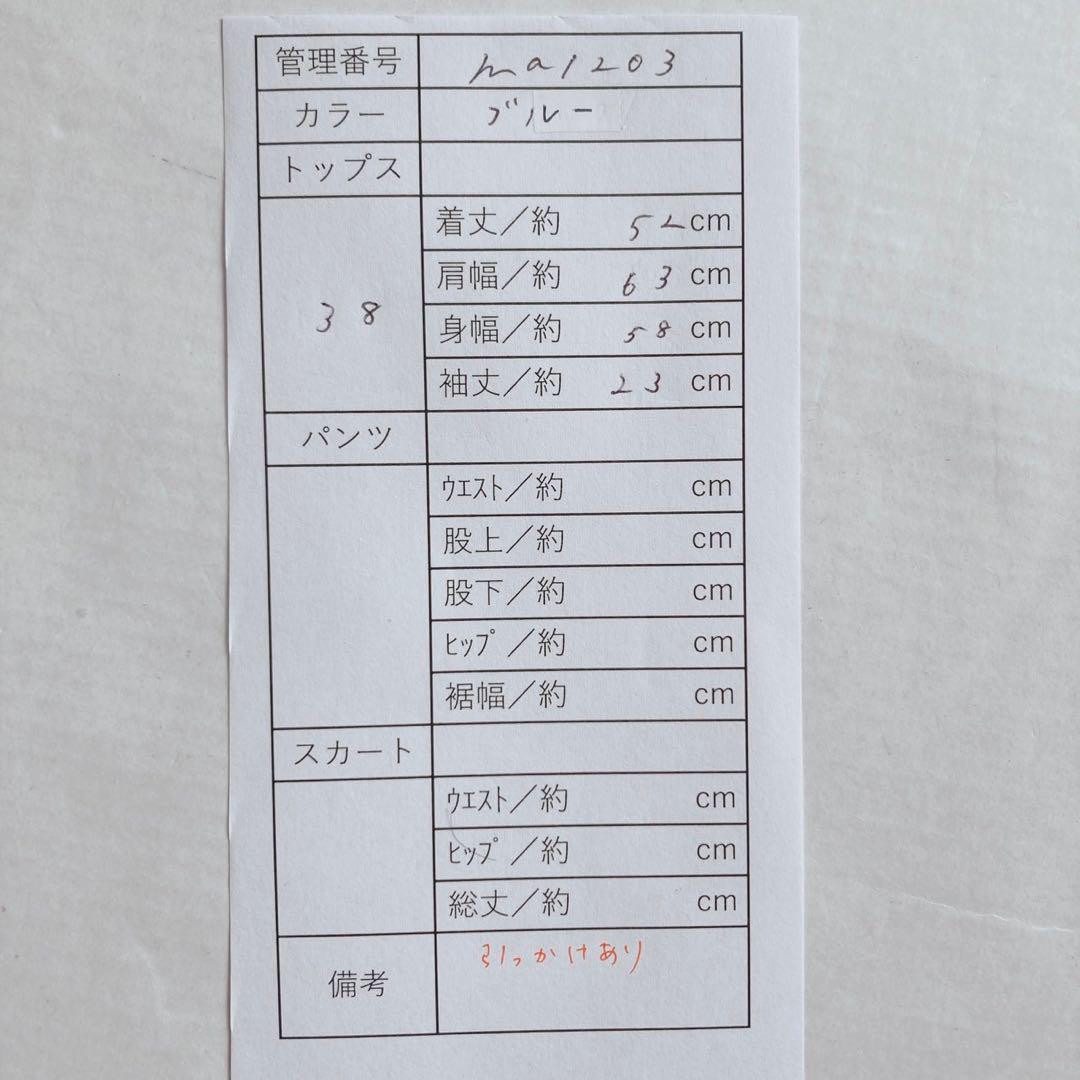 管理番号 ma1203
カラー ブルー
トップス
38
着丈/約 52cm
肩幅/約 63 cm
身幅/約 58 cm
袖丈/約 23 cm
パンツ
ｳｴｽﾄ/約 cm
股上/約 cm
股下/約 cm
ﾋｯﾌﾟ/約 cm
裾幅/約 cm
スカート
ｳｴｽﾄ/約 cm
ﾋｯﾌﾟ/約 cm
総丈/約 cm
備考 引っかけあり